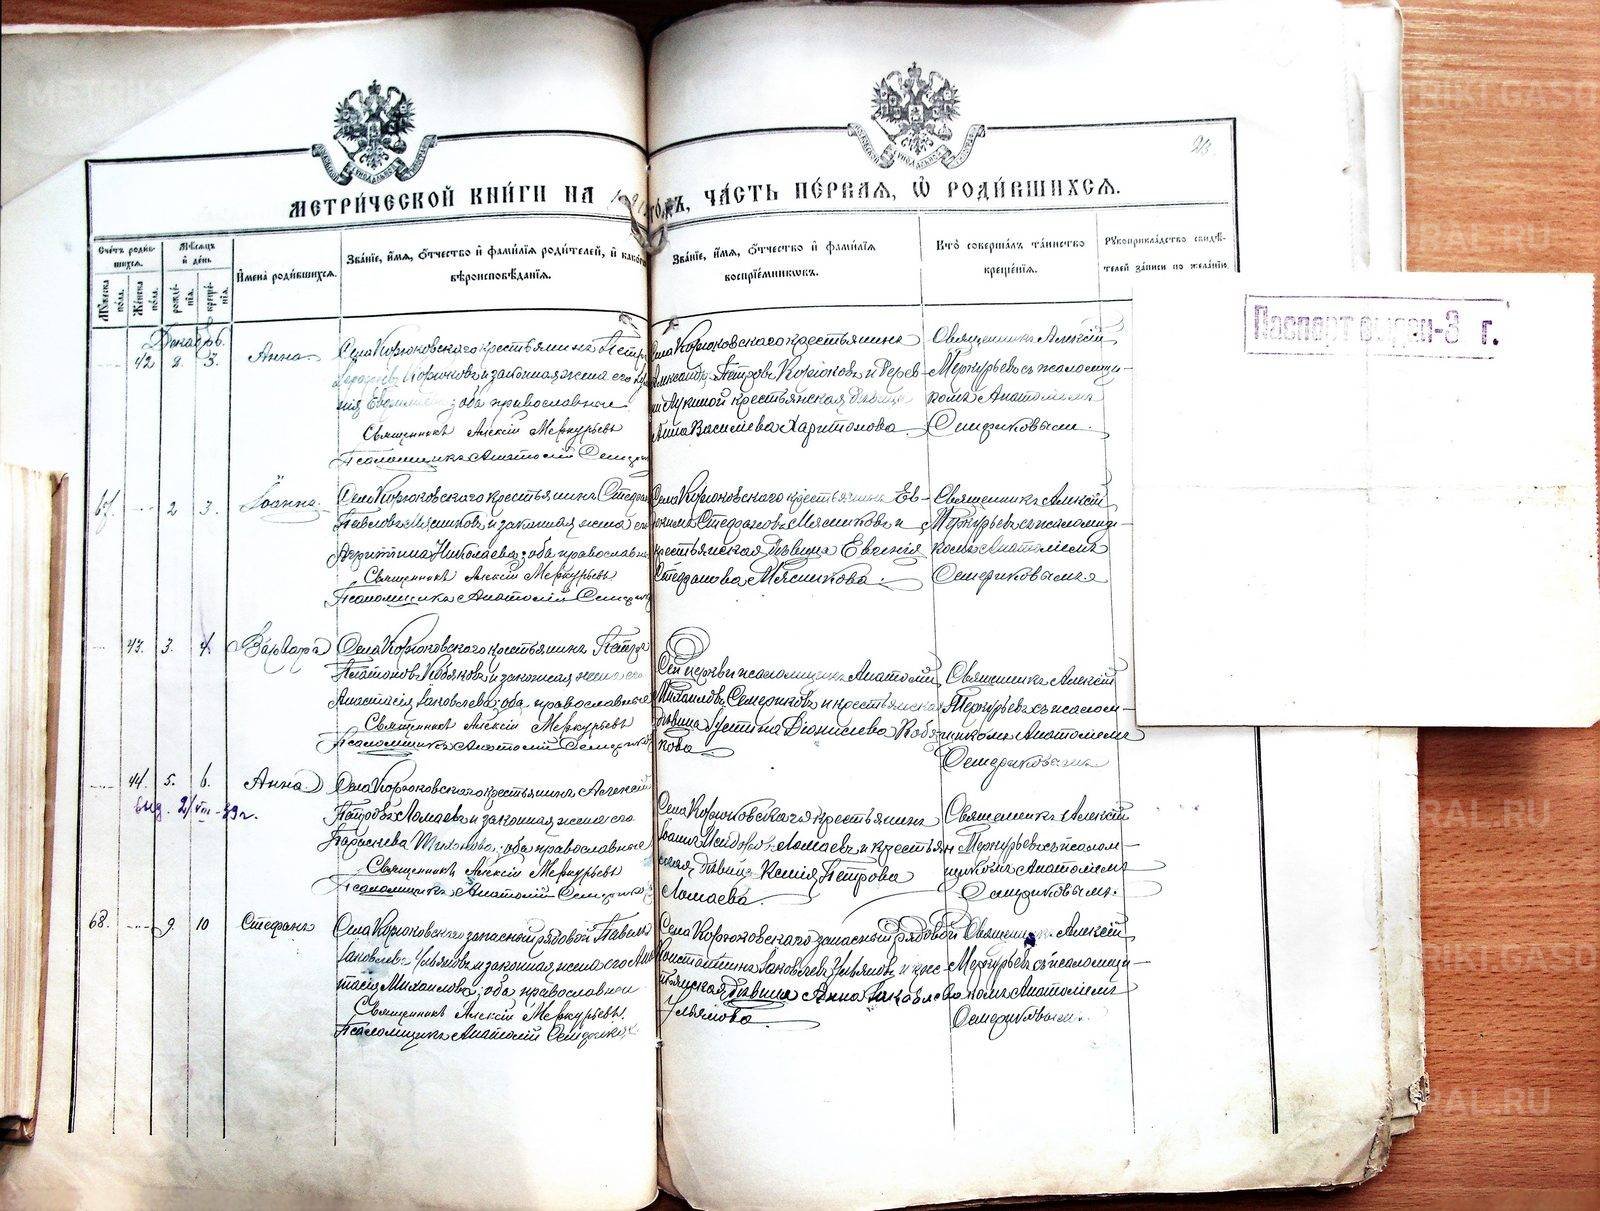 МЕТРИ́ЧЕСКОЙ КНИ́ГИ НА
ГОДЪ, ЧА́СТЬ ПЕ́РВАЯ, Ѿ РОДИ́ВШИХСЯ.
Счетъ роди́вшихся.
Му́жеска по́ла.
Же́нска по́ла.
Мѣ́сяцъ и день
рожде́нія.
креще́нія.
И́мена роди́вшихся.
Зва́ніе, и́мя, о́тчество и фами́лія роди́телей, и како́го
вѣроисповѣ́данія.
Зва́ніе, и́мя, о́тчество и фами́лія
воспріе́мниковъ.
Кто́ соверша́лъ та́инство
креще́нія.
Рукоприкла́дство свидѣ́-
телей за́писи по жела́нію
Декабрь
42 2. 3. Анна.
Села Корюковскаго крестьянинъ
Корюковъ и законная жена его
оба православные
Священникъ Алексій Меркурьевъ
Псаломщикъ Анатолій
Села Корюковскаго крестьянинъ
Александръ Петровъ Корюковъ и дерев-
крестьянская дѣвица
Анна Васильева Харитонова
Священникъ Алексій
Меркурьевъ съ псаломщи-
комъ Анатоліемъ
Семериковымъ.
67. 2 3. Іоаннъ.
Села Корюковскаго крестьянинъ
Павловъ Мясниковъ и законная жена его
Николаева; оба православные
Священникъ Алексій Меркурьевъ
Псаломщикъ Анатолій
Села Корюковскаго крестьянинъ Ев-
Стефановъ Мясниковъ и
крестьянская дѣвица Евгенія
Стефанова Мясникова.
Священникъ Алексій
Меркурьевъ съ псаломщи-
комъ Анатоліемъ
Семериковымъ
43. 3. 4. Варвара
Села Корюковскаго крестьянинъ Петръ
Платоновъ Кобяковъ и законная жена его
Анастасія Іаковлева; оба православные
Священникъ Алексій Меркурьевъ
Псаломщикъ Анатолій
Сей церкви псаломщикъ Анатолій
Михаиловъ Семериковъ и крестьянская
дѣвица Іустина Діонисіева Кобя-
кова
Священникъ Алексій
Меркурьевъ съ псалом-
щикомъ Анатоліемъ
Семериковымъ
44. 5. 6. Анна
выд. 21/VIII-39 г.
Села Корюковскаго крестьянинъ Алексій
Петровъ Ломаевъ и законная жена его
оба православные
Священникъ Алексій Меркурьевъ
Псаломщикъ Анатолій
Села Корюковскаго крестьянинъ
Іоаннъ Исидоровъ Ломаевъ и крестьян
ская дѣвица Ксенія Петрова
Ломаева.
Священникъ Алексій
Меркурьевъ съ псалом-
щикомъ Анатоліемъ
Семериковымъ.
68. 9. 10 Стефанъ
Села Корюковскаго запасный рядовой Павелъ
Іаковлевъ Ульяновъ и законная жена его
Михаилова; оба православные
Священникъ Алексій Меркурьевъ.
Псаломщикъ Анатолій
Села Корюковскаго запасный рядовой
Константинъ Іаковлевъ Ульяновъ и крес-
тьянская дѣвица Анна Іаковлева
Ульянова.
Священникъ Алексій
Меркурьевъ съ псаломщи-
комъ Анатоліемъ
Семериковымъ.
Паспорт выдан-3 г.